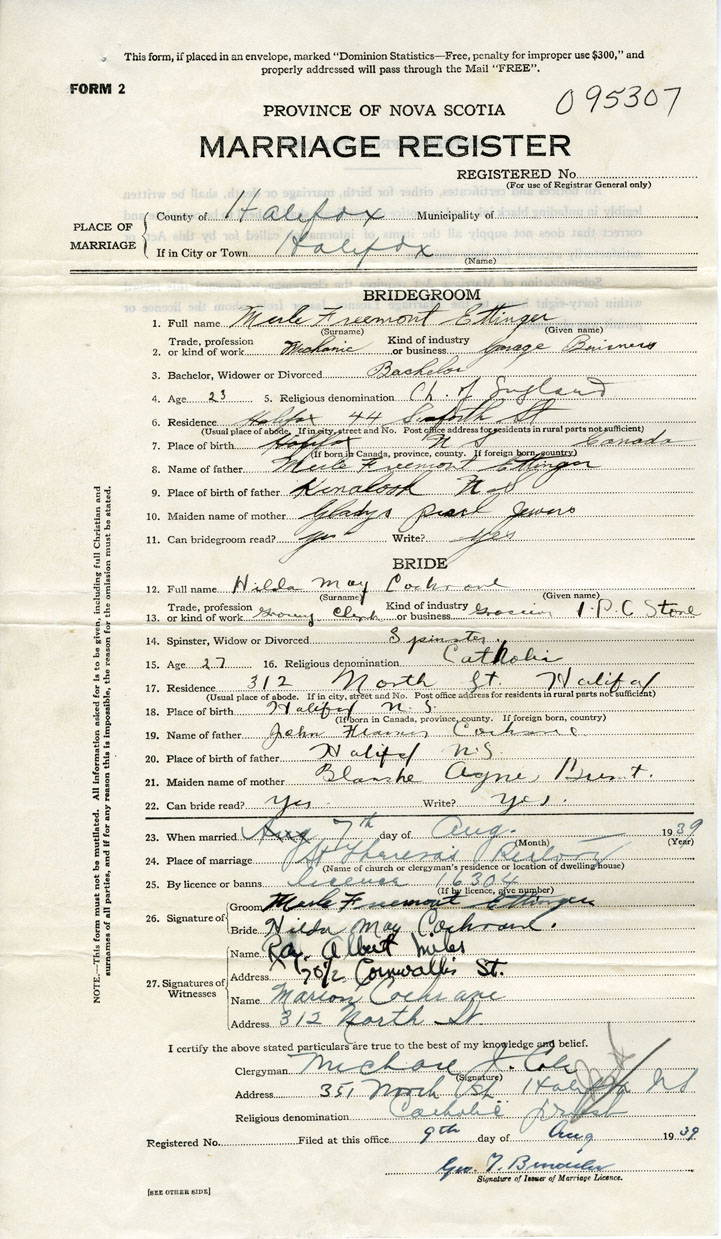 This form, if placed in an envelope, marked "Dominion Statistics—Free, penalty for improper use $300," and
properly addressed will pass through the Mail "FREE".
FORM 2
095307
PROVINCE OF NOVA SCOTIA
MARRIAGE REGISTER
REGISTERED No.
(For use of Registrar General only)
PLACE OF MARRIAGE
County of Halifax Municipality of
If in City or Town Halifax
(Name)
BRIDEGROOM
1. Full name Merle Freemont Ettinger
(Surname) (Given name)
2. Trade, profession or kind of work Mechanic Kind of industry or business Garage Buisness
3. Bachelor, Widower or Divorced Bachelor
4. Age 23 5. Religious denomination Ch. of England
6. Residence Halifax 44 Seaforth St
(Usual place of abode. If in city, street and No. Post office address for residents in rural parts not sufficient)
7. Place of birth Halifax N S Canada
(If born in Canada, province, county. If foreign born, country)
8. Name of father Merle Freemont Ettinger
9. Place of birth of father N S
10. Maiden name of mother Gladys pearl Jewers
11. Can bridegroom read? yes Write? yes
BRIDE
12. Full name Hilda May Cochrane
(Surname) (Given name)
13. Trade, profession or kind of work Grocery Clerk Kind of industry or business Store
14. Spinster, Widow or Divorced Spinster
15. Age 27 16. Religious denomination Catholic
17. Residence 312 North St. Halifax
(Usual place of abode. If in city, street and No. Post office address for residents in rural parts not sufficient)
18. Place of birth Halifax N.S.
(If born in Canada, province, county. If foreign born, country)
19. Name of father John Cochrane
20. Place of birth of father Halifax N.S.
21. Maiden name of mother Blanche
22. Can bride read? yes Write? yes.
23. When married Aug 7th day of Aug. 1939
(Month) (Year)
24. Place of marriage St Theresas
(Name of church or clergyman's residence or location of dwelling house)
25. By licence or banns license 16304
(If by licence, give number)
26. Signature of
Groom Merle Freemont Ettinger
Bride Hilda May Cochrane.
27. Signatures of Witnesses
Name Albert Miles
Address 70½ Cornwallis St.
Name Marion Cochrane
Address 312 North St
I certify the above stated particulars are true to the best of my knowledge and belief.
Clergyman Michael J.
(Signature)
Address 351 North St. Halifax NS
Religious denomination Catholic priest
Registered No. Filed at this office 9th day of Aug 1939
Geo. T.
Signature of Issuer of Marriage Licence.
[SEE OTHER SIDE]
NOTE.—This form must not be mutilated. All information asked for is to be given, including full Christian and
surnames of all parties, and if for any reason this is impossible, the reason for the omission must be stated.